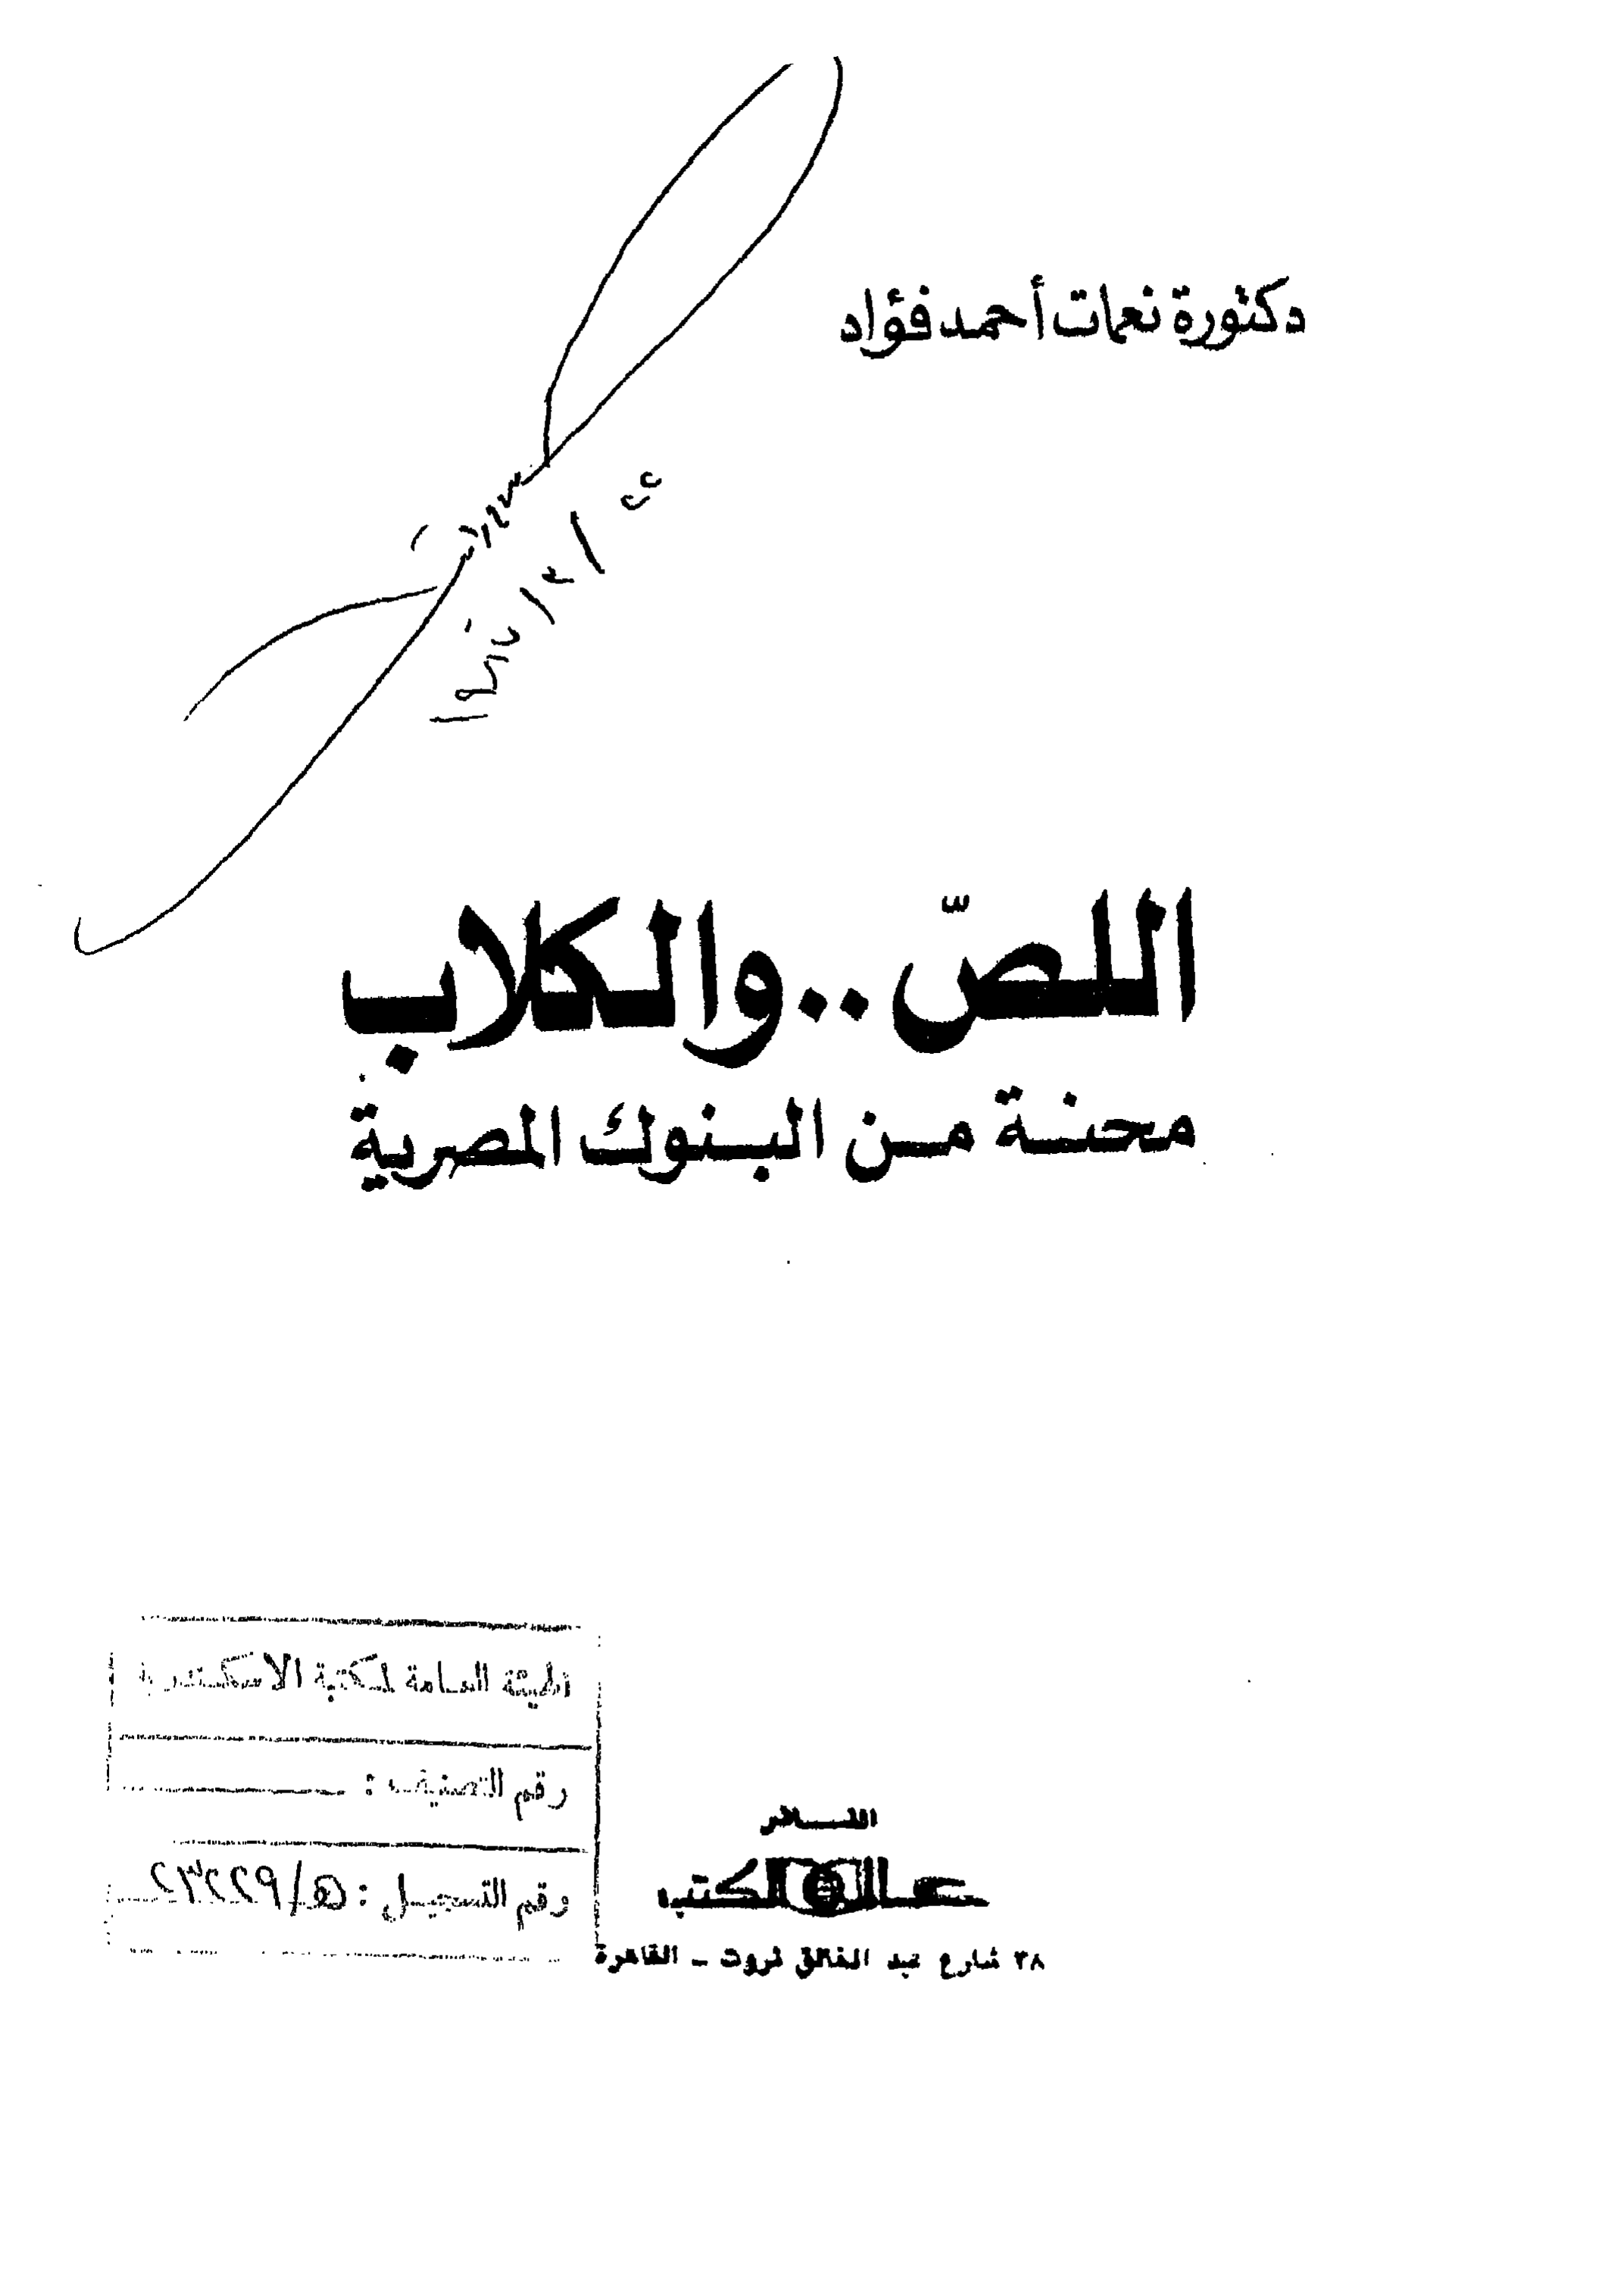 دكتورة نعمات أحمد فؤاد
اللصّ .. والكلاب
محنة من البنوك المصرية
الهيئة العامة لمكتبة الاسكندرية
رقم التصنيف :
رقم التسجيل :
الناشر
عالم الكتب
٣٨ شارع عبد الخالق ثروت - القاهرة